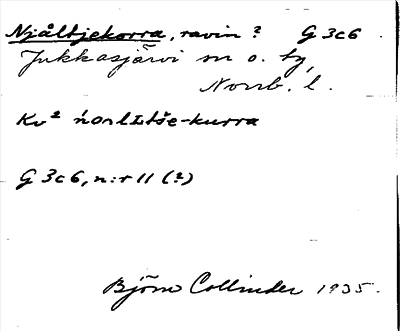 Njåltjekorra, ravin? G 3c6.
Jukkasjärvi sn o. tg,
Norrb. l.
Kv² ńɑlItše-kurra
G 3c6, n:r 11 (?)
Björn Collinder 1935.